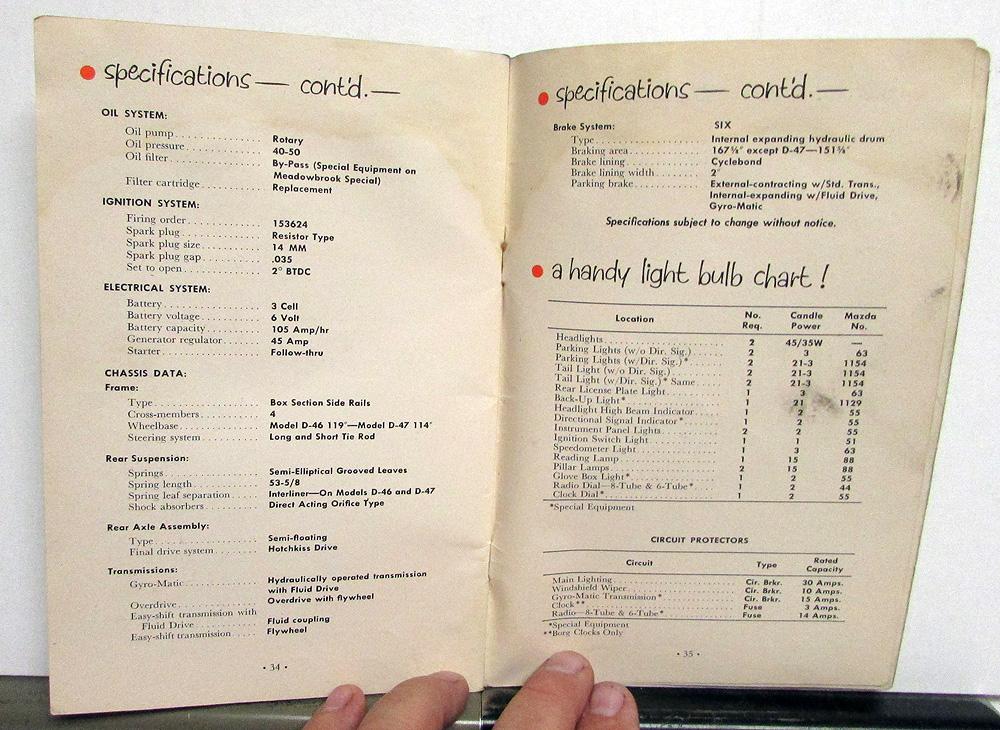 specifications — cont'd. —
OIL SYSTEM:
Oil pump . . . . . Rotary
Oil pressure . . . . . 40-50
Oil filter . . . . . By-Pass (Special Equipment on
Meadowbrook Special)
Filter cartridge . . . . . Replacement
IGNITION SYSTEM:
Firing order . . . . . 153624
Spark plug . . . . . Resistor Type
Spark plug size . . . . . 14 MM
Spark plug gap . . . . . .035
Set to open . . . . . 2° BTDC
ELECTRICAL SYSTEM:
Battery . . . . . 3 Cell
Battery voltage . . . . . 6 Volt
Battery capacity . . . . . 105 Amp/hr
Generator regulator . . . . . 45 Amp
Starter . . . . . Follow-thru
CHASSIS DATA:
Frame:
Type . . . . . Box Section Side Rails
Cross-members . . . . . 4
Wheelbase . . . . . Model D-46 119″—Model D-47 114″
Steering system . . . . . Long and Short Tie Rod
Rear Suspension:
Springs . . . . . Semi-Elliptical Grooved Leaves
Spring length . . . . . 53-5/8
Spring leaf separation . . . . . Interliner—On Models D-46 and D-47
Shock absorbers . . . . . Direct Acting Orifice Type
Rear Axle Assembly:
Type . . . . . Semi-floating
Final drive system . . . . . Hotchkiss Drive
Transmissions:
Gyro-Matic . . . . . Hydraulically operated transmission
with Fluid Drive
Overdrive . . . . . Overdrive with flywheel
Easy-shift transmission with
Fluid Drive . . . . . Fluid coupling
Easy-shift transmission . . . . . Flywheel
• 34 •
specifications — cont'd. —
Brake System: SIX
Type . . . . . Internal expanding hydraulic drum
Braking area . . . . . 167¾″ except D-47—151¾″
Brake lining . . . . . Cyclebond
Brake lining width . . . . . 2″
Parking brake . . . . . External-contracting w/Std. Trans.,
Internal-expanding w/Fluid Drive,
Gyro-Matic
Specifications subject to change without notice.
a handy light bulb chart!
Location No. Req. Candle Power Mazda No.
Headlights . . . . . 2 45/35W —
Parking Lights (w/o Dir. Sig.) . . . . . 2 3 63
Parking Lights (w/Dir. Sig.)* . . . . . 2 21-3 1154
Tail Light (w/o Dir. Sig.) . . . . . 2 21-3 1154
Tail Light (w/Dir. Sig.)* Same . . . . . 2 21-3 1154
Rear License Plate Light . . . . . 1 3 63
Back-Up Light* . . . . . 1 21 1129
Headlight High Beam Indicator . . . . . 1 2 55
Directional Signal Indicator* . . . . . 1 2 55
Instrument Panel Lights . . . . . 2 2 55
Ignition Switch Light . . . . . 1 1 51
Speedometer Light . . . . . 1 3 63
Reading Lamp . . . . . 1 15 88
Pillar Lamps . . . . . 2 15 88
Glove Box Light* . . . . . 1 2 55
Radio Dial—8-Tube & 6-Tube* . . . . . 1 2 44
Clock Dial* . . . . . 1 2 55
*Special Equipment
CIRCUIT PROTECTORS
Circuit Type Rated Capacity
Main Lighting . . . . . Cir. Brkr. 30 Amps.
Windshield Wiper . . . . . Cir. Brkr. 10 Amps.
Gyro-Matic Transmission* . . . . . Cir. Brkr. 15 Amps.
Clock** . . . . . Fuse 3 Amps.
Radio—8-Tube & 6-Tube* . . . . . Fuse 14 Amps.
*Special Equipment
**Borg Clocks Only
• 35 •